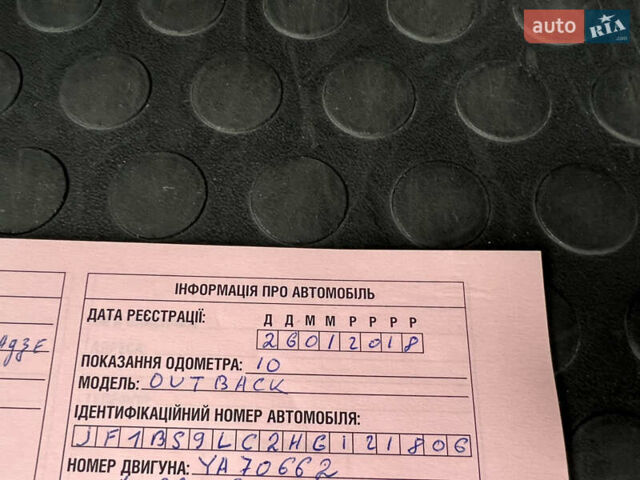 auto RIA .com
ІНФОРМАЦІЯ ПРО АВТОМОБІЛЬ
ДАТА РЕЄСТРАЦІЇ: Д Д М М Р Р Р Р
26012018
ПОКАЗАННЯ ОДОМЕТРА: 10
МОДЕЛЬ: OUTBACK
ІДЕНТИФІКАЦІЙНИЙ НОМЕР АВТОМОБІЛЯ:
JF1BS9LC2HG121806
НОМЕР ДВИГУНА: YA70662